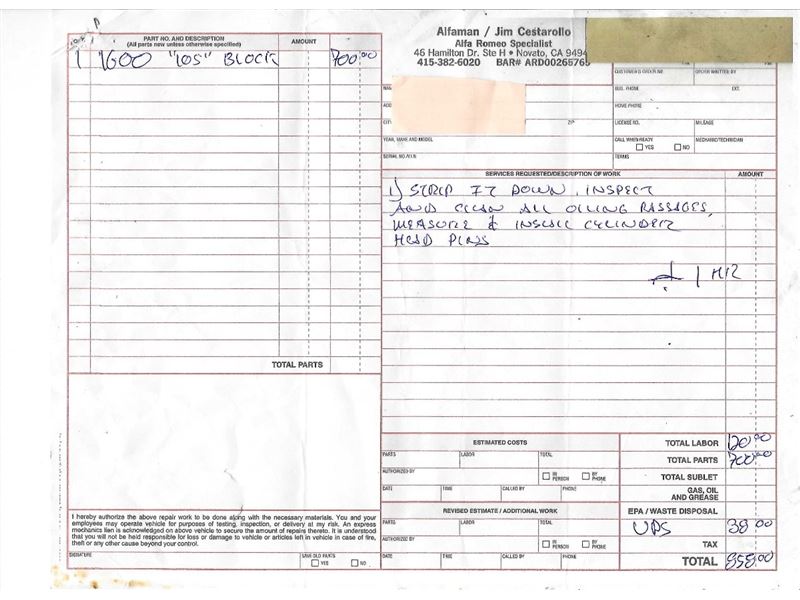 PART NO. AND DESCRIPTION
(All parts new unless otherwise specified)
AMOUNT
1 1600 "105" BLOCK 700.00
TOTAL PARTS
Alfaman / Jim Cestarollo
Alfa Romeo Specialist
46 Hamilton Dr. Ste H • Novato, CA 9494
415-382-6020 BAR# ARD00265765
CUSTOMER'S ORDER NO. ORDER WRITTEN BY
BUS. PHONE EXT.
HOME PHONE
ZIP LICENSE NO. MILEAGE
YEAR, MAKE AND MODEL
CALL WHEN READY
YES NO
MECHANIC/TECHNICIAN
SERIAL NO./V.I.N. TERMS
SERVICES REQUESTED/DESCRIPTION OF WORK AMOUNT
1) STRIP IT DOWN, INSPECT
AND CLEAN ALL OILING PASSAGES,
MEASURE & INSTALL CYLINDER
HEAD PINS
1 HR
ESTIMATED COSTS
PARTS LABOR TOTAL
AUTHORIZED BY IN PERSON BY PHONE
DATE TIME CALLED BY PHONE
REVISED ESTIMATE / ADDITIONAL WORK
PARTS LABOR TOTAL
AUTHORIZED BY IN PERSON BY PHONE
DATE TIME CALLED BY PHONE
TOTAL LABOR 120.00
TOTAL PARTS 700.00
TOTAL SUBLET
GAS, OIL
AND GREASE
EPA / WASTE DISPOSAL
UPS 38.00
TAX
TOTAL 858.00
I hereby authorize the above repair work to be done along with the necessary materials. You and your
employees may operate vehicle for purposes of testing, inspection, or delivery at my risk. An express
mechanics lien is acknowledged on above vehicle to secure the amount of repairs thereto. It is understood
that you will not be held responsible for loss or damage to vehicle or articles left in vehicle in case of fire,
theft or any other cause beyond your control.
SIGNATURE
SAVE OLD PARTS
YES NO